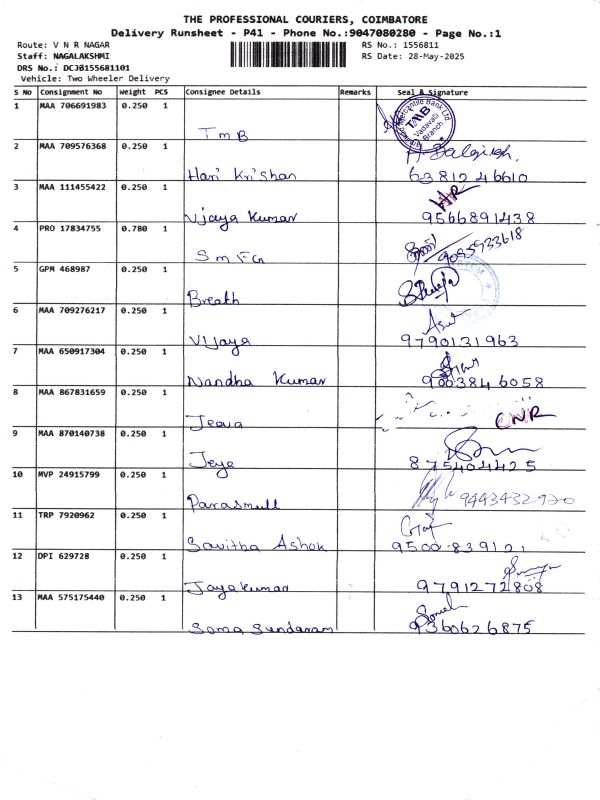 THE PROFESSIONAL COURIERS, COIMBATORE
Delivery Runsheet - P41 - Phone No.:9047080280 - Page No.:1
Route: V N R NAGAR RS No.: 1556811
Staff: NAGALAKSHMI RS Date: 28-May-2025
DRS No.: DCJB155681101
Vehicle: Two Wheeler Delivery
S No Consignment No Weight PCS Consignee Details Remarks Seal & Signature
1 MAA 706691983 0.250 1 TMB
Mercantile Bank Ltd
TMB
Vadavalli
Branch
2 MAA 709576368 0.250 1 Hari Kri'shan 6381246610
3 MAA 111455422 0.250 1 Vijaya Kumar 9566891438
4 PRO 17834755 0.780 1 SMFG 9095933618
5 GPM 468987 0.250 1 Breath
6 MAA 709276217 0.250 1 Vijaya 9790131963
7 MAA 650917304 0.250 1 Nandha Kumar 9003846058
8 MAA 867831659 0.250 1 Jeeva CNR
9 MAA 870140738 0.250 1 Jeye 875404425
10 MVP 24915799 0.250 1 Parasmull 9443432920
11 TRP 7920962 0.250 1 Savitha Ashok 9500839121
12 DPI 629728 0.250 1 Jayakumar 9791272808
13 MAA 575175440 0.250 1 Soma Sundaram 9360626875